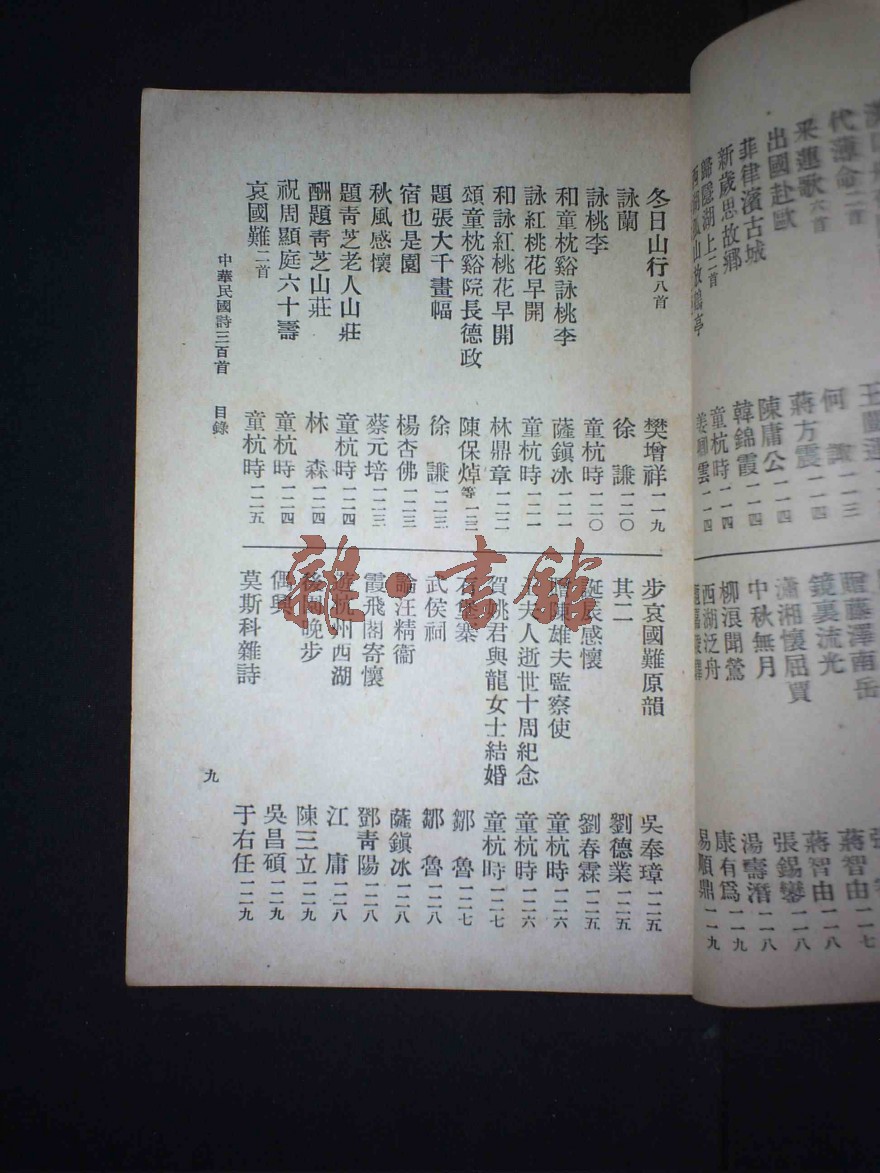 代薄命二首
采蓮歌六首
出國赴歐
菲律濱古城
新歲思故鄉
歸隱湖上二首
何
蔣方震 一一四
陳庸公 一一四
韓錦霞 一一四
童杭時 一一四
贈藤澤南岳
鏡裏流光
瀟湘懷屈賈
中秋無月
柳浪聞鶯
西湖泛舟
蔣智由
蔣智由 一一八
張錫鑾 一一八
湯壽潛 一一八
康有為 一一九
易順鼎 一一九
冬日山行八首 樊增祥 一一九
詠蘭 徐謙 一二〇
詠桃李 童杭時 一二〇
和童枕谿詠桃李 薩鎭冰 一二一
詠紅桃花早開 童杭時 一二一
和詠紅桃花早開 林鼎章 一二二
頌童枕谿院長德政 陳保焯等 一二二
題張大千畫幅 徐謙 一二三
宿也是園 楊杏佛 一二三
秋風感懷 蔡元培 一二三
題靑芝老人山莊 童杭時 一二四
酬題靑芝山莊 林森 一二四
祝周顯庭六十壽 童杭時 一二四
哀國難二首 童杭時 一二五
步哀國難原韻 吳奉璋 一二五
其二 劉德業 一二五
誕辰感懷 劉春霖 一二五
贈陳雄夫監察使 童杭時 一二六
夫人逝世十周紀念 童杭時 一二六
賀姚君與龍女士結婚 童杭時 一二七
石堡寨 鄒魯 一二七
武侯祠 鄒魯 一二八
論汪精衞 薩鎭冰 一二八
霞飛閣寄懷 鄧靑陽 一二八
遊杭州西湖 江庸 一二八
後園晚步 陳三立 一二九
偶興 吳昌碩 一二九
莫斯科雜詩 于右任 一二九
中華民國詩三百首 目錄
九
雜·書館